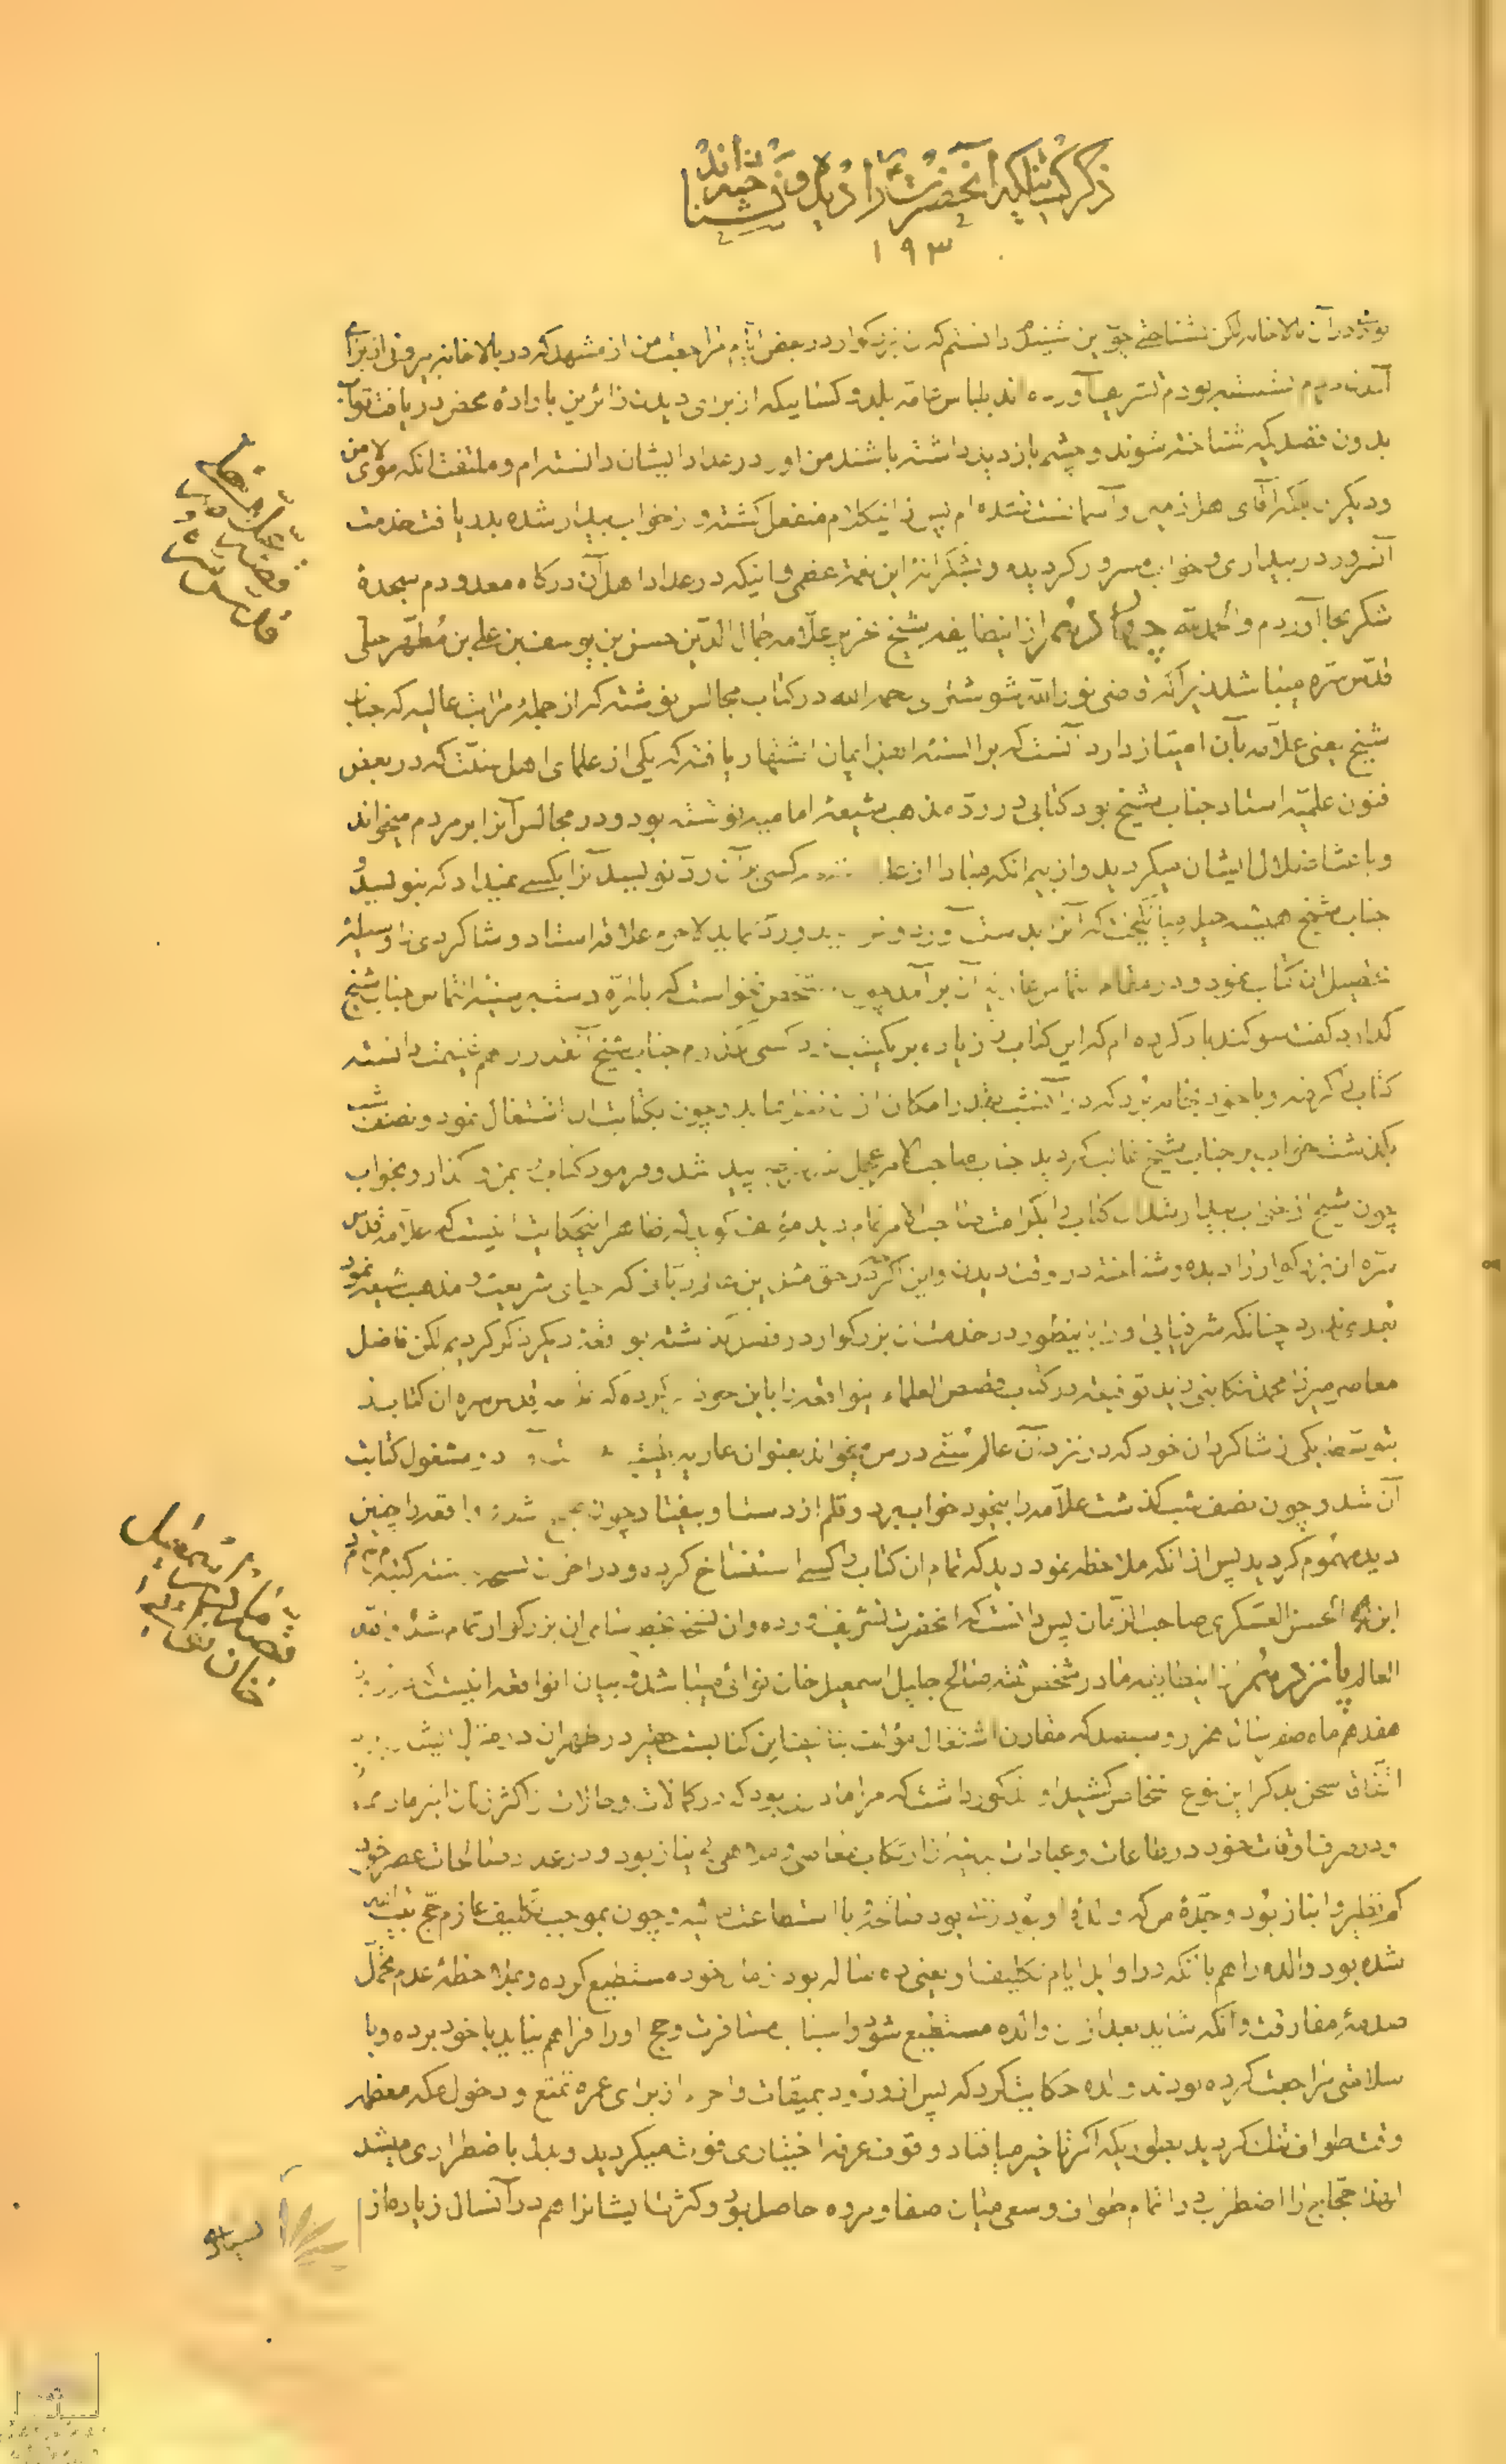 ذکر کسانیکه آنحضرت را دیده و نشناخته‌اند
۱۹۳
در آن بالاخانه لکن نشناختی چون این شنیدم دانستم که آن بزرگوار در بعض ایام مراجعت من از مشهد که در بالاخانه بیرونی از برای
آمدن مردم نشسته بودم تشریف آورده‌اند بلباس عامه بلد و کسانیکه از برای دیدن زائرین باراده محض دریافت ثواب
بدون قصد اینکه شناخته شوند و چشم بازدید داشته باشند من او را در عداد ایشان دانسته‌ام و ملتفت آنکه مولای من
و دیگران بلکه آقای اهل زمین و آسمانست نشده‌ام پس از اینکلام منفعل گشته و از خواب بیدار شده بدریافت خدمت
آنسرور در بیداری و خواب مسرور گردیده و بشکرانه این نعمت عظمی و اینکه در عداد اهل آن درگاه معدودم سجده
شکر بجا آوردم و الحمدلله چهاردهم از اینطایفه شیخ علامه جمال الدین حسن بن یوسف بن علی بن مطهر حلی
قدس سره میباشد زیرا که قاضی نورالله شوشتری رحمه الله در کتاب مجالس نوشته که از جمله مراتب عالیه که جناب
شیخ یعنی علامه بآن امتیاز دارد آنست که بر السنه اهل ایمان اشتهار یافته که یکی از علمای اهل سنت که در بعض
فنون علمیه استاد جناب شیخ بود کتابی در رد مذهب شیعه امامیه نوشته بود و در مجالس آنرا بر مردم میخواند
و باعث اضلال ایشان میگردید و از بیم آنکه مبادا از علمای شیعه کسی بر آن رد نویسد آنرا بکسی نمیداد که بنویسد و
جناب شیخ همیشه حیله میانگیخت که آنرا بدست آورد و رد نماید لاجرم علاقه استاد و شاگردی را وسیله
تحصیل آن کتاب نمود و در مقام التماس عاریه آن برآمد چون آن شخص نخواست که یکباره دست رد بسینه التماس جناب شیخ
گذارد گفت سوگند یاد کرده‌ام که این کتاب را زیاده بر یکشب نزد کسی نگذارم جناب شیخ آنقدر را هم غنیمت دانسته
کتاب را گرفته و با خود بخانه برد که در آنشب بقدر امکان از آن نقل نماید و چون بکتابت آن اشتغال نمود و نصف شب
بگذشت خواب بر جناب شیخ غالب گردید جناب صاحب الامر پیدا شد و فرمود کتاب را بمن گذار و بخواب
چون شیخ از خواب بیدار شد آن کتاب را بکرامت صاحب الامر تمام دید مؤلف گوید که ظاهر اینحکایت اینست که علامه قدس
سره آن بزرگوار را دیده و شناخته در وقت دیدن و این اگر چه در حق مثل این عالم ربانی که احیای شریعت و مذهب شیعه نمود
بعدی ندارد چنانکه شرفیابی او را باینطور در خدمت آن بزرگوار در فصل گذشته بواقعه دیگر ذکر کردیم لکن فاضل
معاصر میرزا محمد تنکابنی زید توفیقه در کتاب قصص العلماء اینواقعه را باین نحو آورده که علامه قدس سره آن کتاب را
بتوسط یکی از شاگردان خود که در نزد آن عالم سنی درس میخواند بعنوان عاریه مشغول کتابت
آن شد و چون نصف شب گذشت علامه را بیخود خواب برد و قلم از دست او بیفتاد چون صبح شد و واقعه را چنین
دیده مهموم گردید پس از آنکه ملاحظه نمود دید که تمام آن کتاب را کسی استنساخ کرده و در آخر آن نسخه نوشته کتبه م ح م د
ابن الحسن العسکری صاحب الزمان پس دانست که آنحضرت تشریف آورده و آن نسخه بخط سامی آن بزرگوار تمام شده والله
العالم پانزدهم از اینطایفه مادر شخص ثقه صالح جلیل اسمعیل خان نوائی میباشد بیان اینواقعه اینست که روز
هفدهم ماه صفر بسال هزار و سیصد که مقارن اشتغال مؤلف بتألیف این کتابست حقیر در طهران در منزل ایشان
اتفاق سخن بذکر این نوع اشخاص کشید او مذکور داشت که مرا مادری بود که در کمالات و حالات از اکثر زنان امتیاز
و در صرف اوقات خود در طاعات و عبادات بدنیه و از ارتکاب معاصی و مناهی بی نیاز بود و در عداد صالحات عصر خود
کم نظیر و انباز بود و جده من که والده او بود زنی بود صالحه با استطاعت مالیه و چون بموجب تکلیف عازم حج بیت الله
شده بود والده را هم با آنکه در اوایل ایام تکلیف او یعنی ده ساله بود از مال خود مستطیع کرده و بملاحظه عدم تحمل
صدمه مفارقت و آنکه شاید بعد از آن والده مستطیع شود و اسباب مسافرت و حج او را فراهم نیاید با خود برده و با
سلامتی مراجعت کرده بودند والده حکایت کرد که پس از ورود بمیقات و احرام از برای عمره تمتع و دخول مکه معظمه
وقت طواف تنگ گردید بطوریکه اگر تاخیر میافتاد وقوف عرفه اختیاری فوت میگردید و بدل باضطراری میشد
لهذا حجاج را اضطراب در اتمام طواف و سعی میان صفا و مروه حاصل بود و کثرت ایشانرا هم در آنسال زیاده از